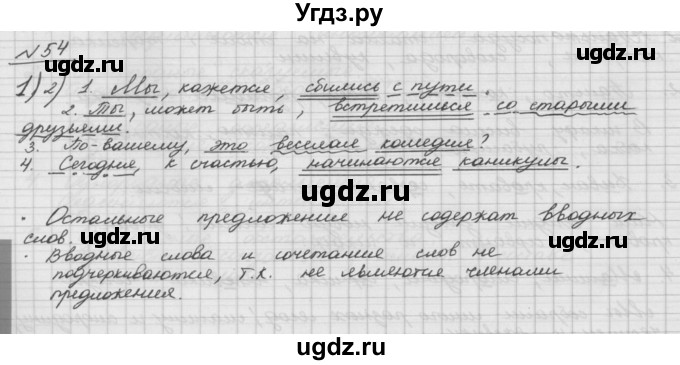 Угдз.ру
N 54
1) 2) 1. Мы, кажется, сбились с пути.
2. Ты, может быть, встретишься со старыми
друзьями.
3. По-вашему, это веселая комедия?
4. Сегодня, к счастью, начинаются каникулы.
• Остальные предложения не содержат вводных
слов.
• Вводные слова и сочетания слов не
подчеркиваются, т.к. не являются членами
предложения.
ugdz.ru ugdz.ru
ugdz.ru ugdz.ru
ugdz.ru ugdz.ru
ugdz.ru ugdz.ru
ugdz.ru ugdz.ru